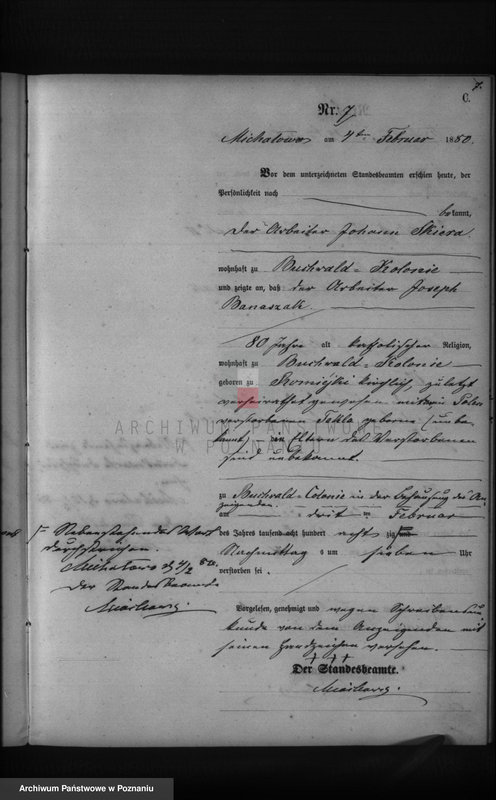 7.
C.
Nr. 7
Michalowo am 4ten Februar 1880.
Vor dem unterzeichneten Standesbeamten erschien heute, der
Persönlichkeit nach
bekannt,
der Arbeiter Johann Skiera
wohnhaft zu Buchwald-Kolonie
und zeigte an, daß der Arbeiter Joseph
Banaszak
80 Jahre alt katholischer Religion,
wohnhaft zu Buchwald-Kolonie
geboren zu kirchlich, zuletzt
verheirathet gewesen mit
verstorbenen Tekla geborene (unbe
kannt), die Eltern des Verstorbenen
sind unbekannt.
zu Buchwald-Colonie in der Behausung des An
zeigenden
am drit ten Februar
des Jahres tausend acht hundert acht zig und
Nachmittag um sieben Uhr
verstorben sei.
Nebenstehendes Wort
durchstrichen.
Michalowo d 4/2 80.
Der Standesbeamte
Vorgelesen, genehmigt und wegen Schreibensun
kunde von dem Anzeigenden mit
seinen Handzeichen versehen.
+ + +
Der Standesbeamte.
ARCHIWUM PAŃSTWOWE
W POZNANIU
Archiwum Państwowe w Poznaniu